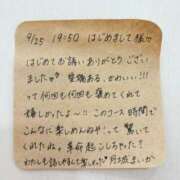 9/25 19:50 はじめまして様♡
はじめてお誘いありがとうござい
ました♡ 愛嬌ある、かわいい!!!
って何回も何回も褒めてくれて
嬉しかったよ〜!! このコース時間で
こんなに楽しめんねやって驚いて
くれたねぇ。革命起こしちゃった?
わたしも話しやすくて楽しかった